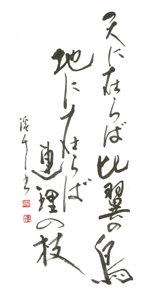 天に在らば比翼の鳥
地に在らば
連理の枝